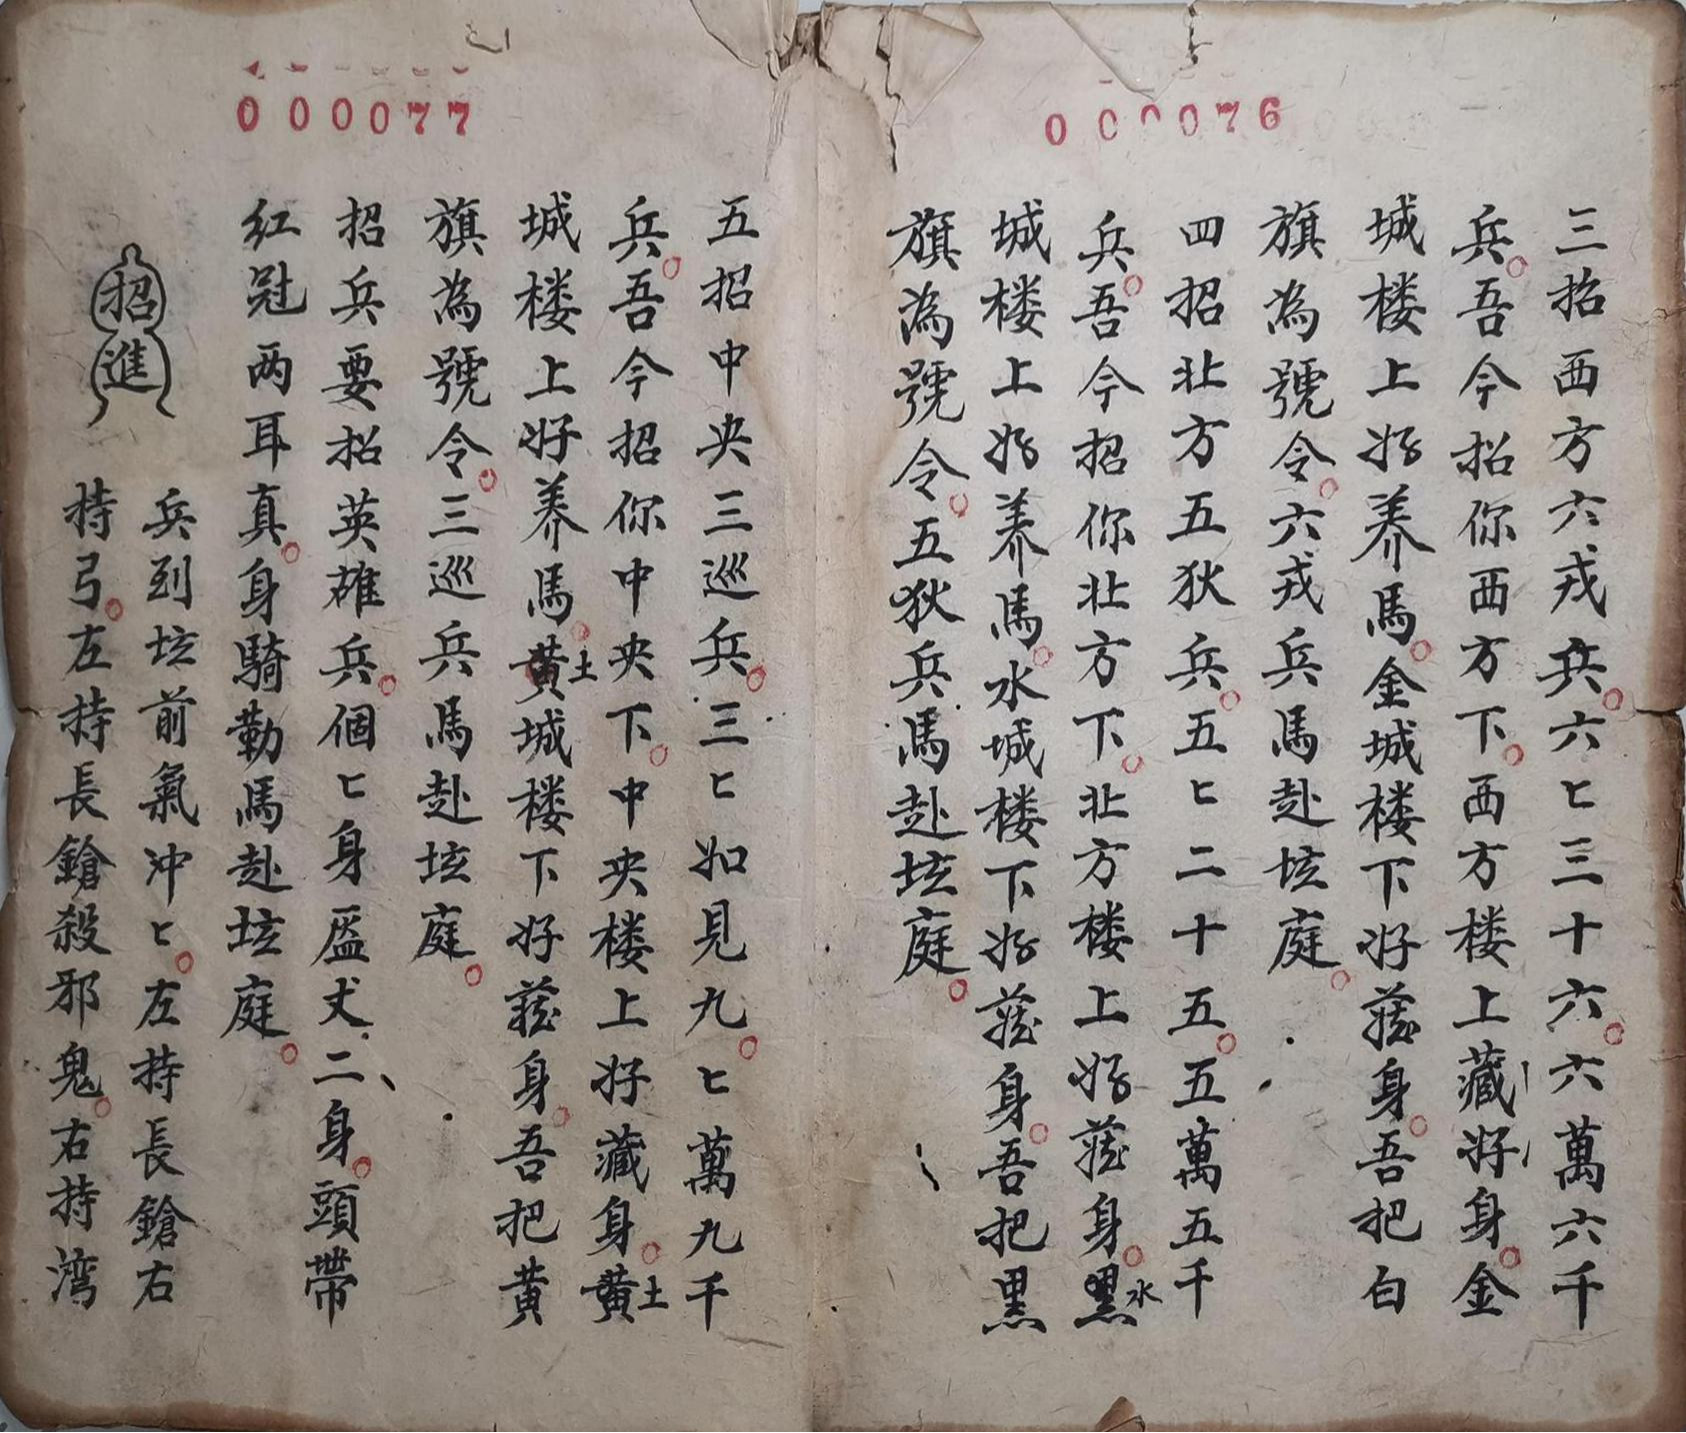 000076
三招西方六戎兵六匕三十六六萬六千
兵吾今招你西方下西方楼上藏好身金
城楼上好养馬金城楼下好藏身吾把白
旗為號令六戎兵馬赴坛庭
四招北方五狄兵五匕二十五五萬五千
兵吾今招你北方下北方楼上好藏身黑水
城楼上好养馬水城楼下好藏身吾把黑
旗為號令五狄兵馬赴坛庭
000077
五招中央三巡兵三匕如見九匕萬九千
兵吾今招你中央下中央楼上好藏身黄土
城楼上好养馬黄土城楼下好藏身吾把黄
旗為號令三巡兵馬赴坛庭
招兵要招英雄兵個匕身盔丈二身頭帶
紅冠两耳真身騎勒馬赴坛庭
招進
兵到坛前氣冲匕左持長鎗右
持弓左持長鎗殺邪鬼右持湾